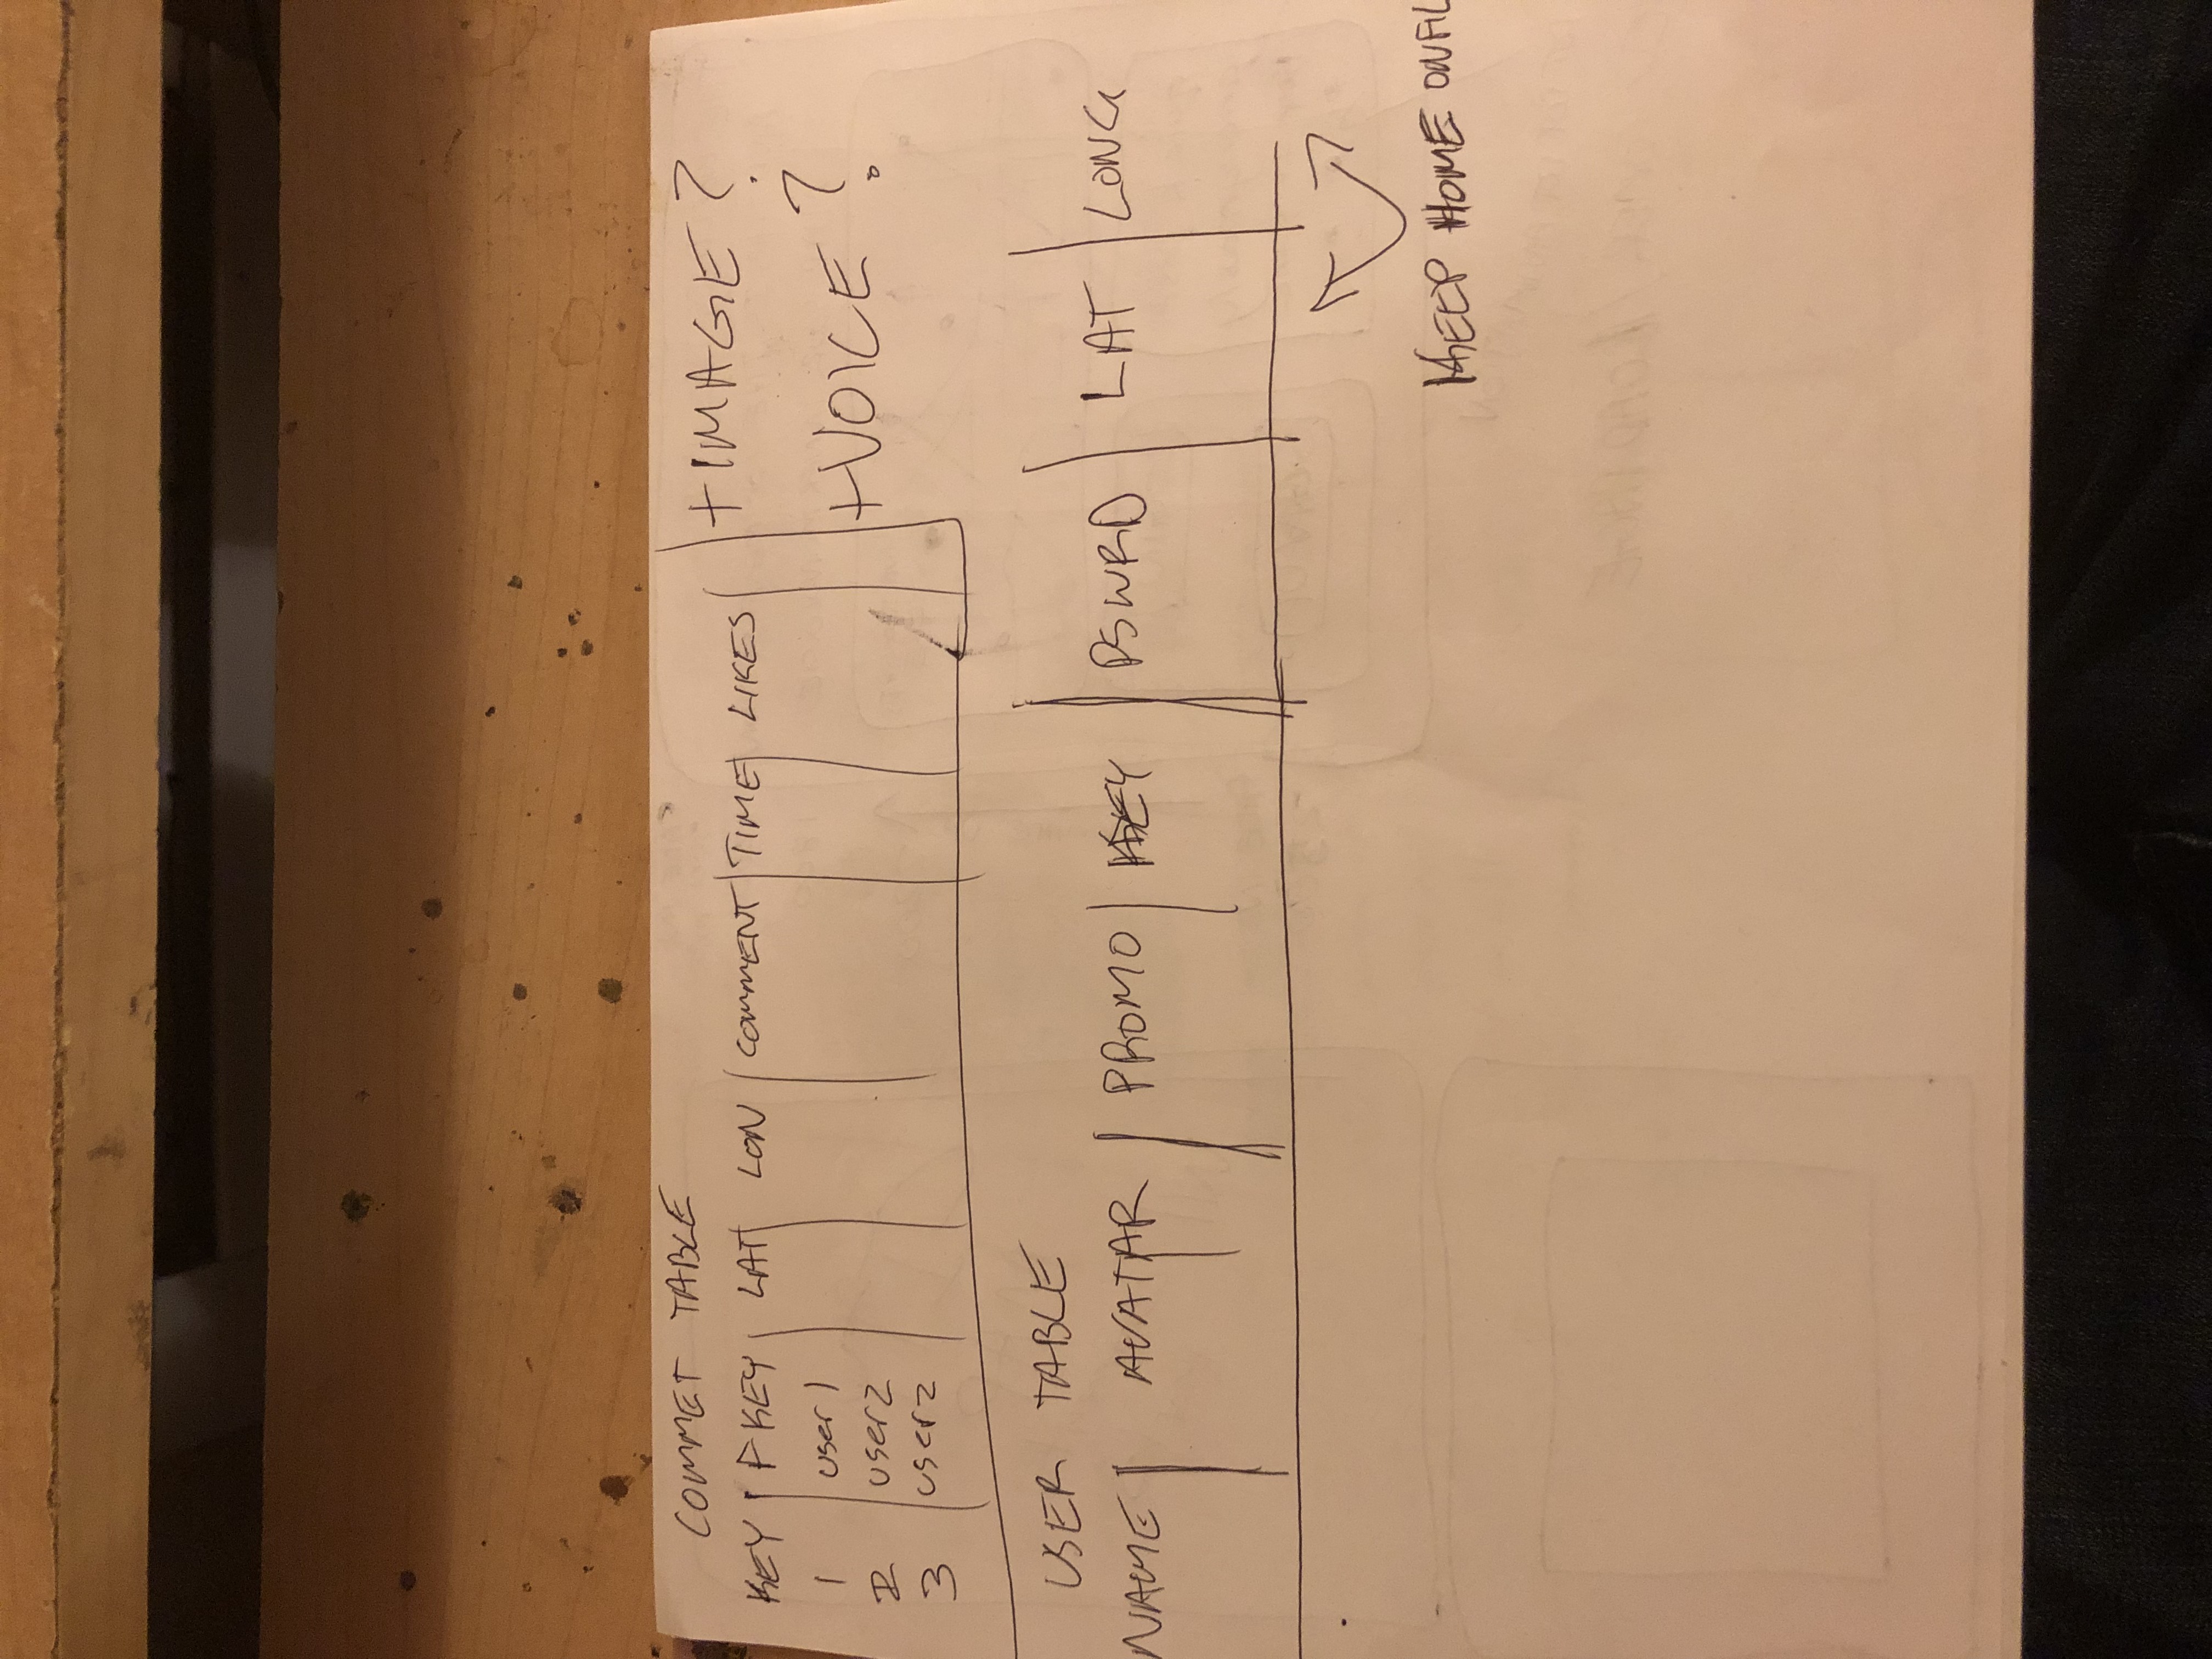 COMMET TABLE
KEY FKEY LAT LON COMMENT TIME LIKES
1 user1
2 user2
3 user2
+IMAGE?
+VOICE?
USER TABLE
NAME AVATAR PROMO KEY PSWRD LAT LONG
KEEP HOME ONFIL